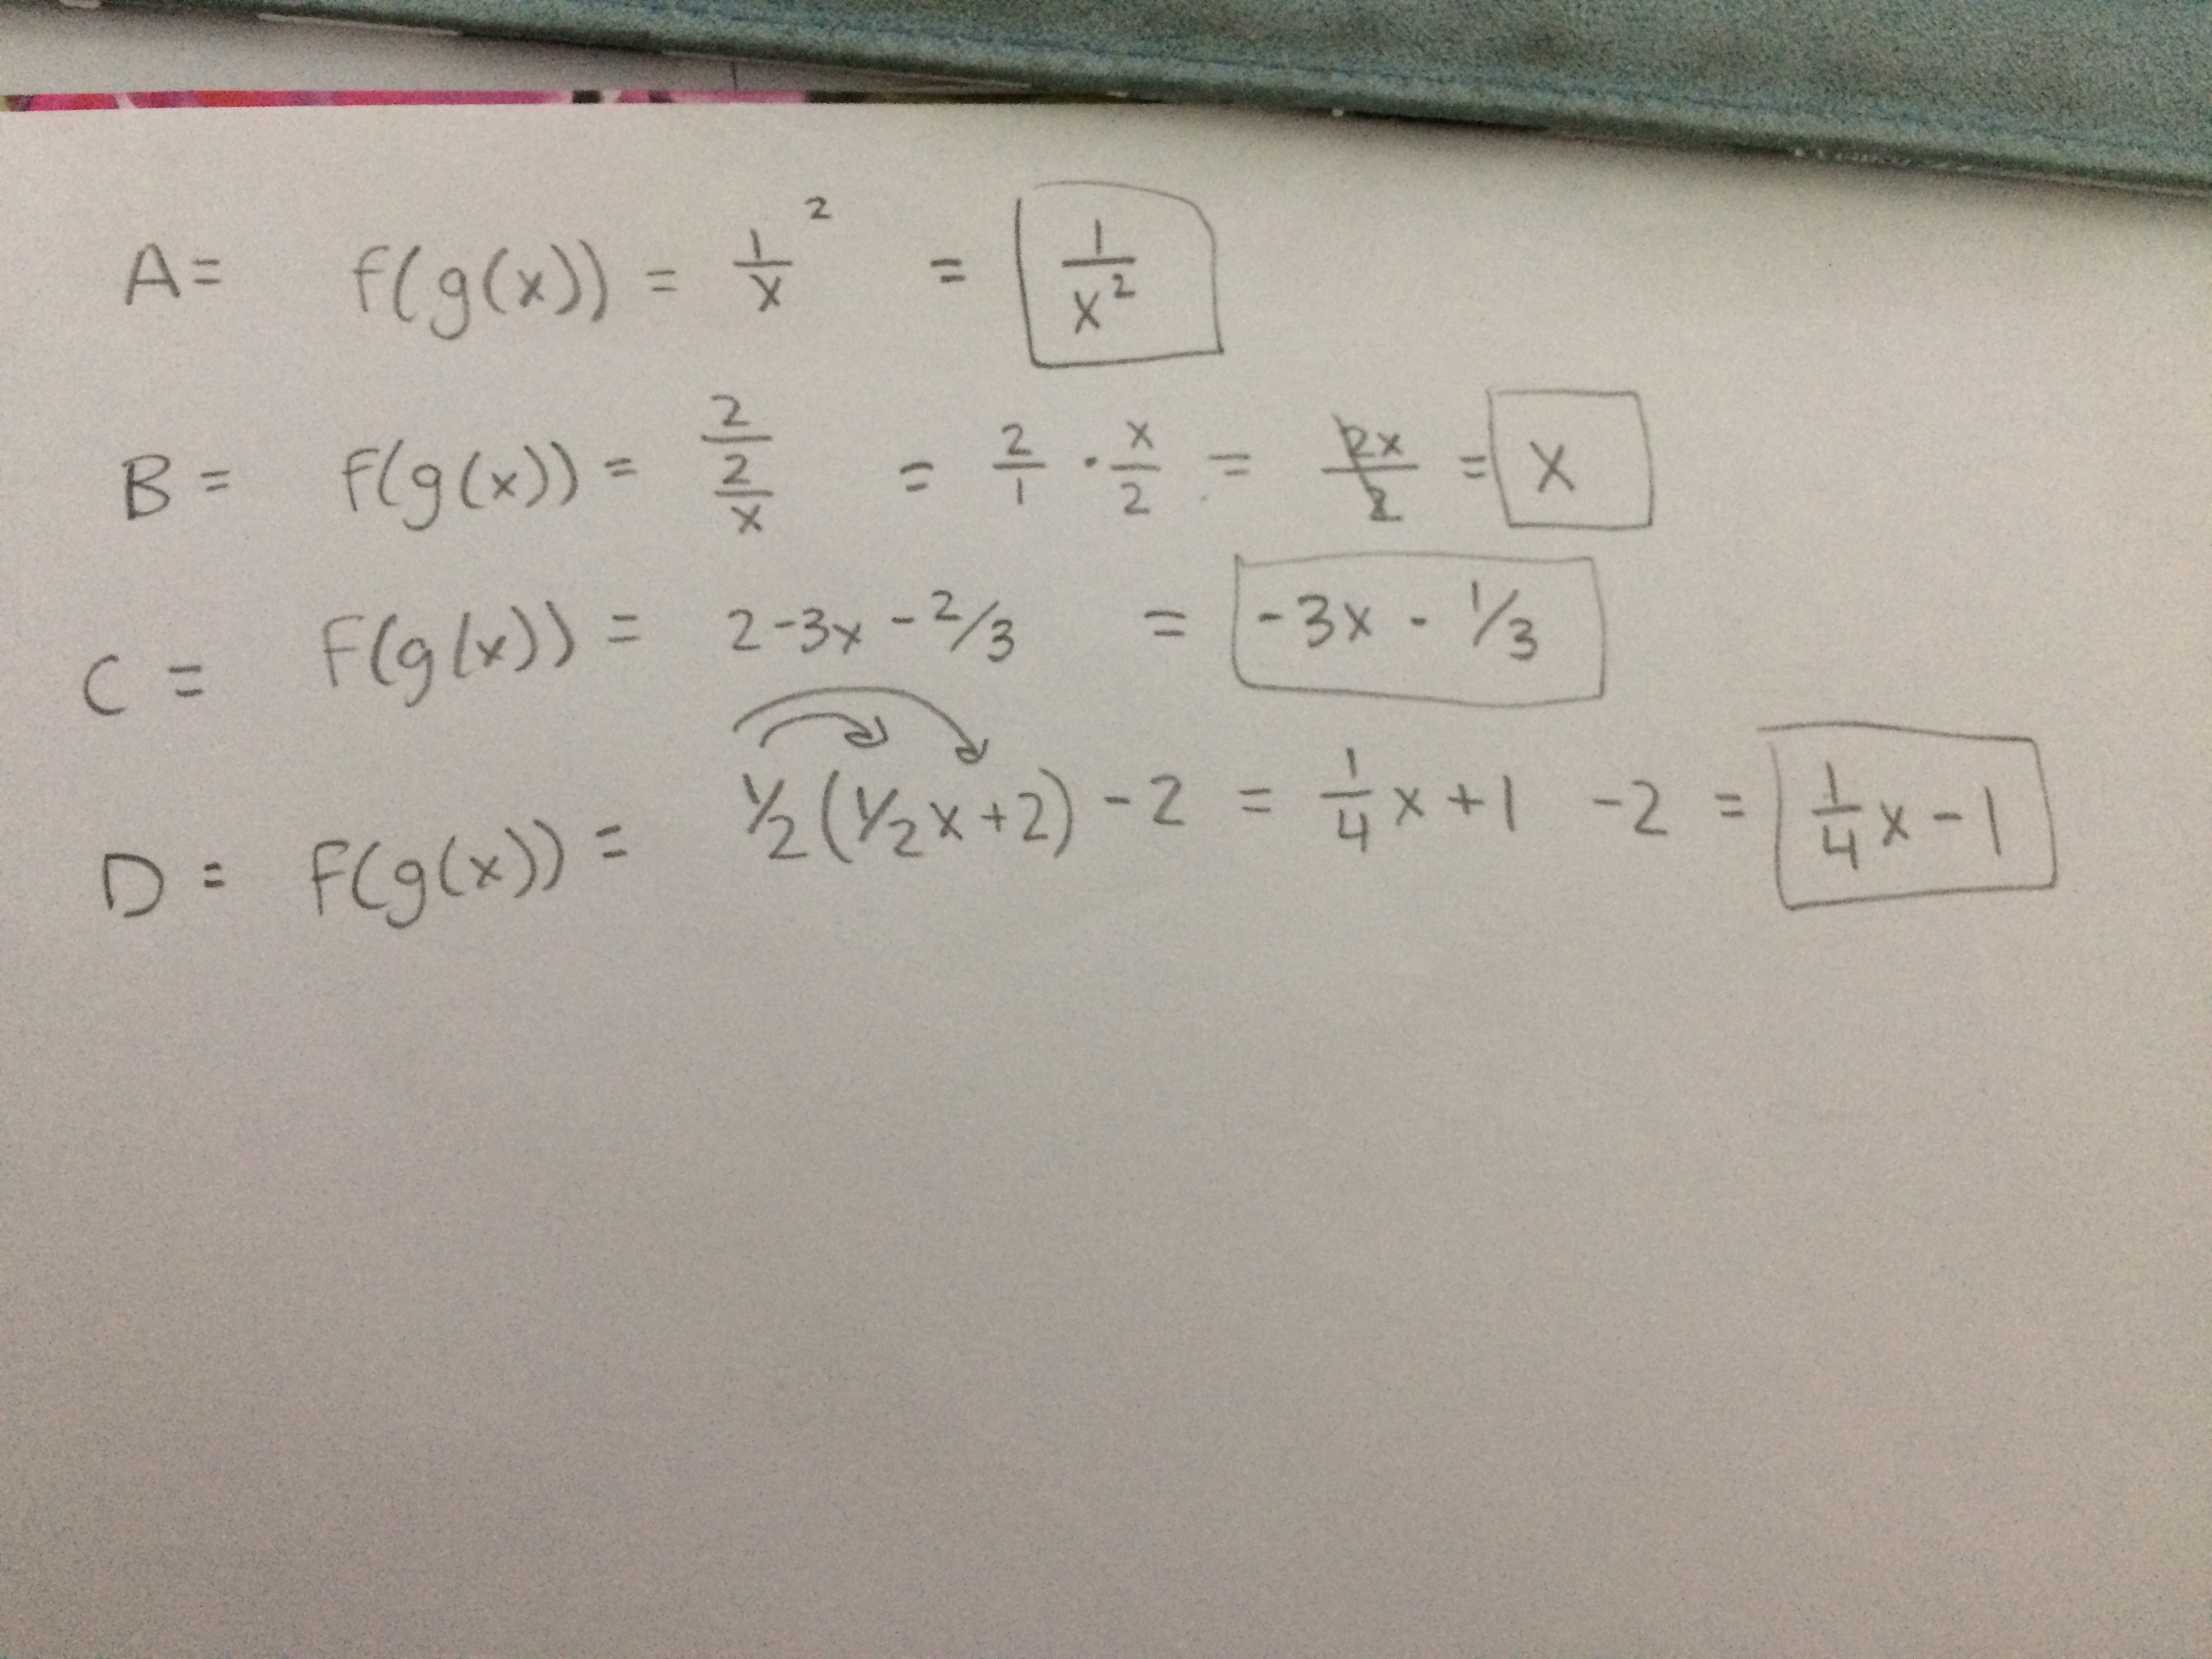 A= f(g(x)) = 1/x ² = 1/x²
B = f(g(x)) = 2/(2/x) = 2/1 · x/2 = 2x/2 = x
C = f(g(x)) = 2-3x - 2/3 = -3x - 1/3
D = f(g(x)) = 1/2(1/2x+2) - 2 = 1/4x+1 -2 = 1/4x-1